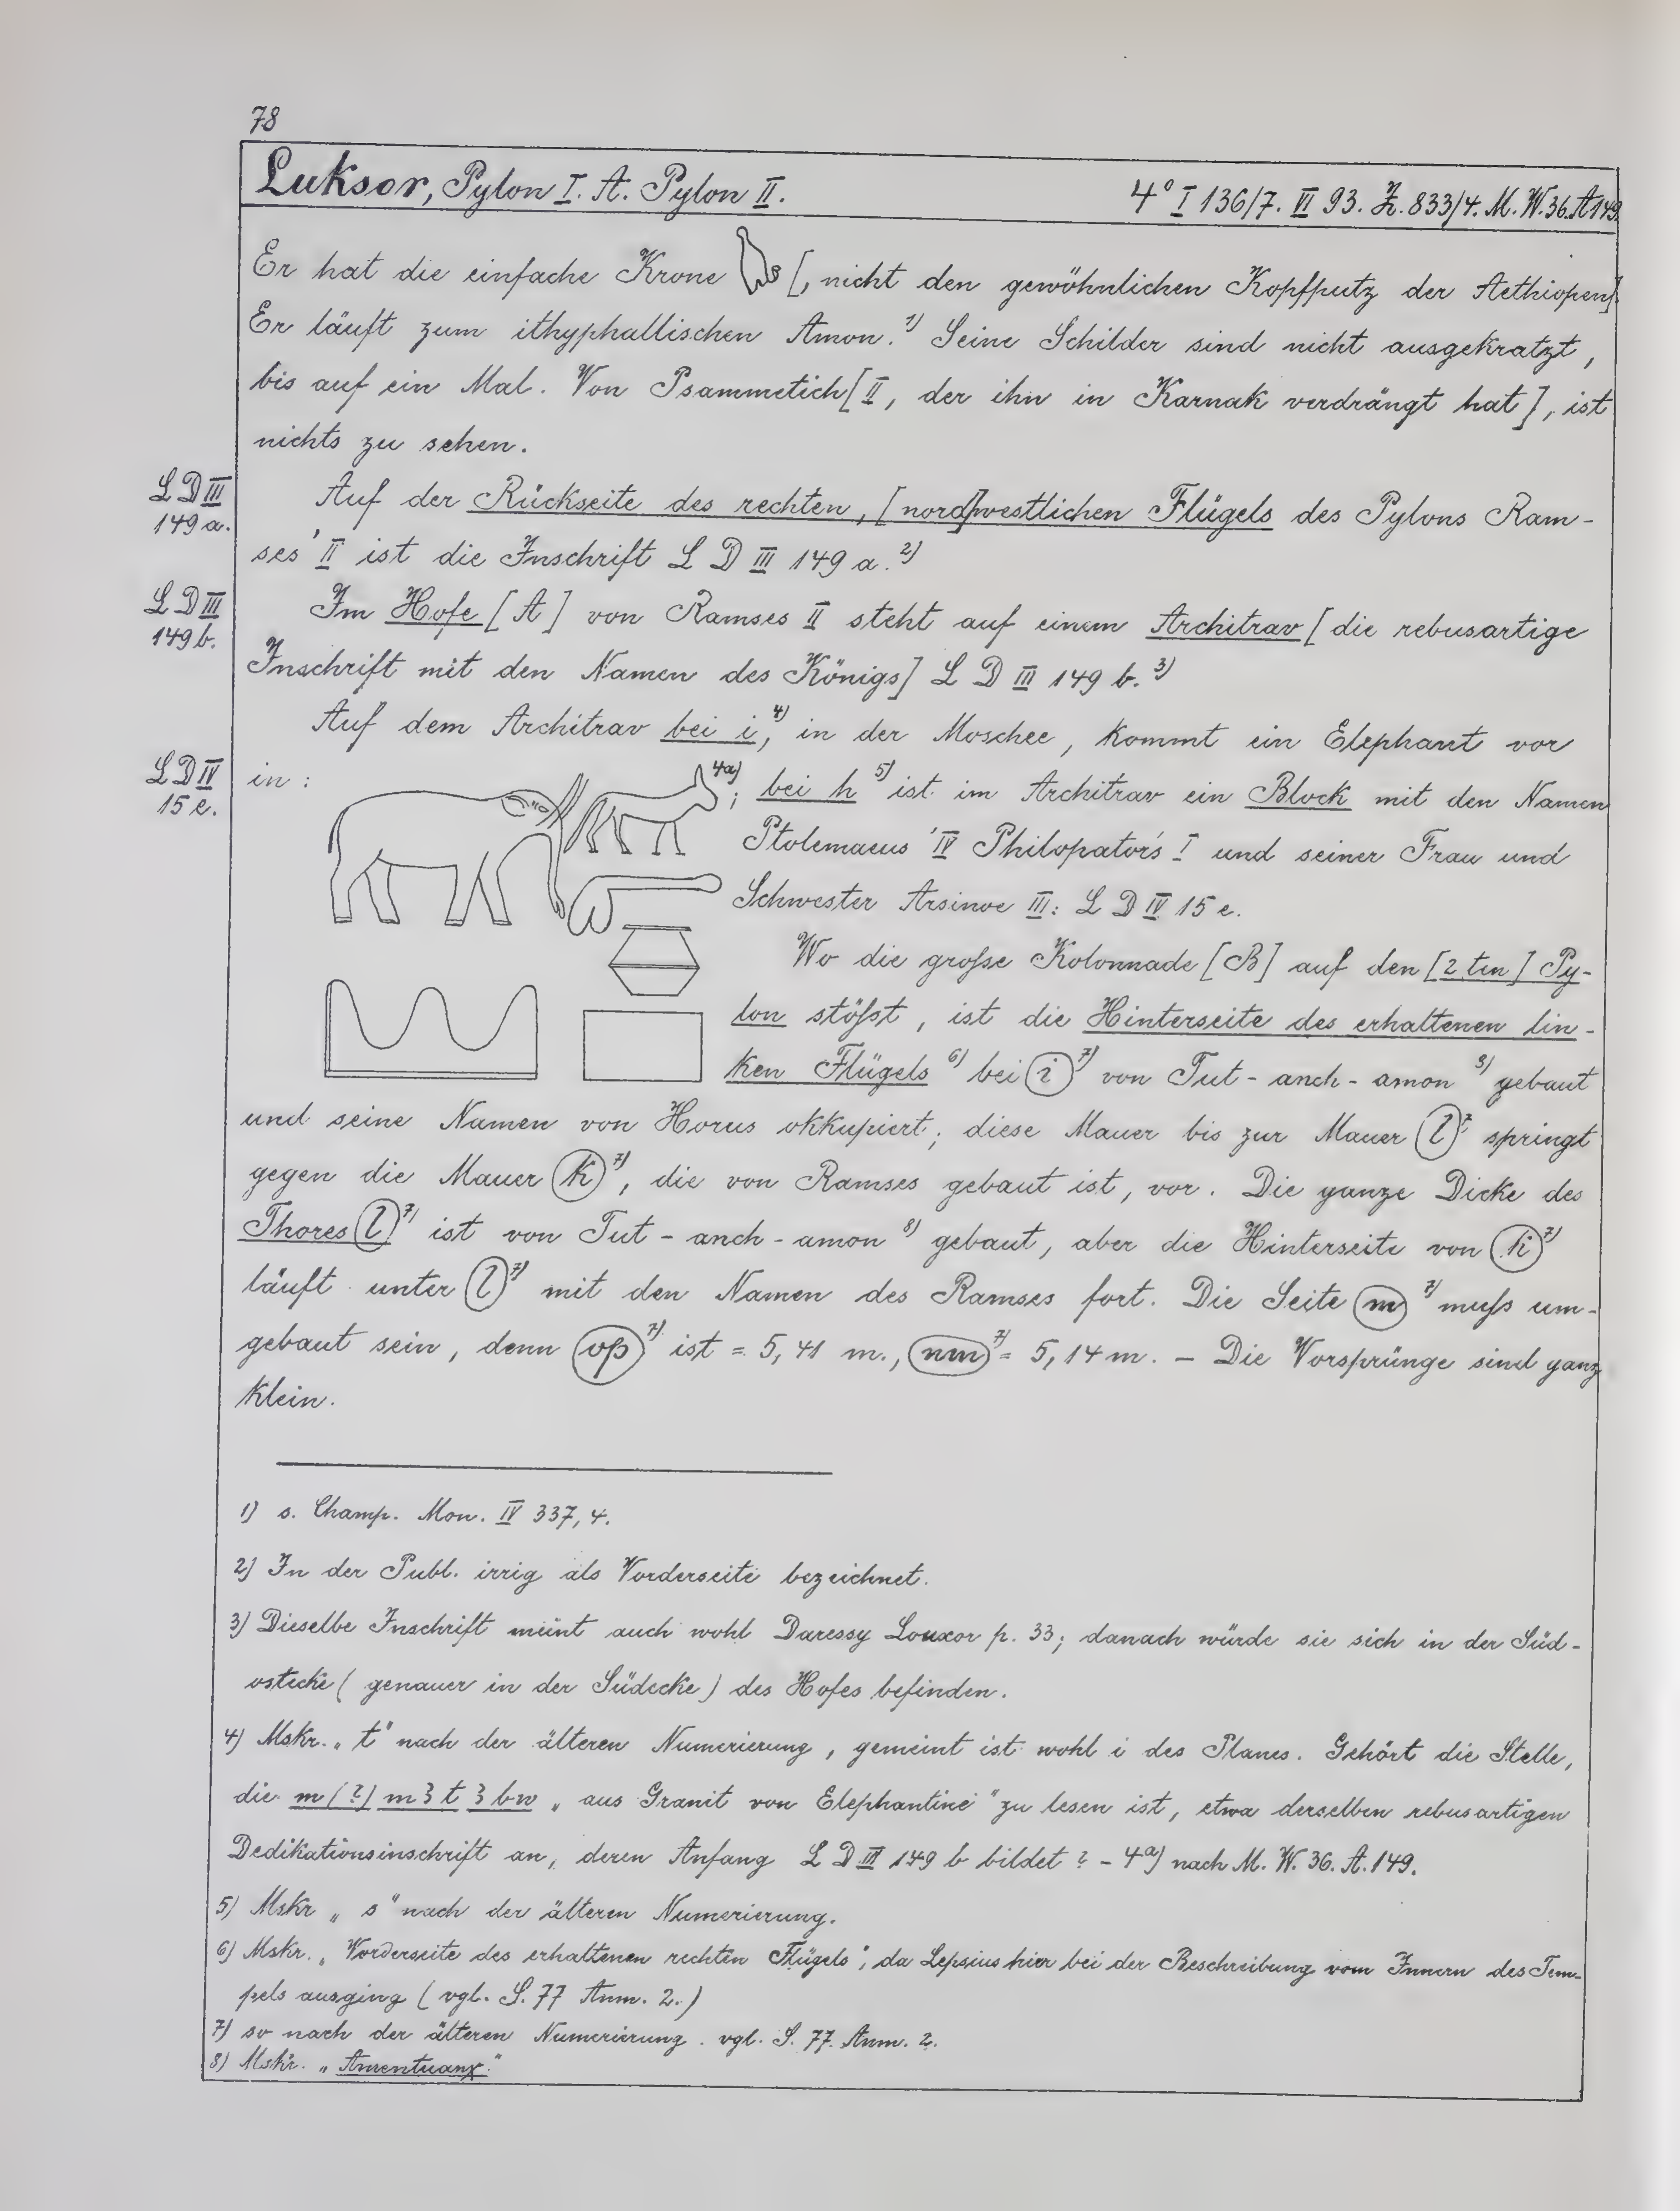 78
Luksor, Pylon I. A. Pylon II.
4° I 136/7. VI 93. Z. 833/4. M. W. 36. A 149.
Er hat die einfache Krone [, nicht den gewöhnlichen Kopfputz der Aethiopen]
Er läuft zum ithyphallischen Amon.¹⁾ Seine Schilder sind nicht ausgekratzt,
bis auf ein Mal. Von Psammetich [II, der ihn in Karnak verdrängt hat], ist
nichts zu sehen.
LD III
149 a.
Auf der Rückseite des rechten, [nord]westlichen Flügels des Pylons Ram-
ses' II ist die Inschrift L D III 149 a.²⁾
LD III
149 b.
Im Hofe [A] von Ramses II steht auf einem Architrav [die rebusartige
Inschrift mit den Namen des Königs] L D III 149 b.³⁾
Auf dem Architrav bei i,⁴⁾ in der Moschee, kommt ein Elephant vor
LD IV
15 e.
in : ⁴ᵃ⁾; bei h⁵⁾ ist im Architrav ein Block mit den Namen
Ptolemaeus' IV Philopator's I und seiner Frau und
Schwester Arsinoe III: L D IV 15 e.
Wo die große Kolonnade [B] auf den [2 ten] Py-
lon stößt, ist die Hinterseite des erhaltenen lin-
ken Flügels⁶⁾ bei i⁷⁾ von Tut-anch-amon⁸⁾ gebaut
und seine Namen von Horus okkupiert; diese Mauer bis zur Mauer l⁷⁾ springt
gegen die Mauer k⁷⁾, die von Ramses gebaut ist, vor. Die ganze Dicke des
Thores l⁷⁾ ist von Tut-anch-amon⁸⁾ gebaut, aber die Hinterseite von k⁷⁾
läuft unter l⁷⁾ mit den Namen des Ramses fort. Die Seite m⁷⁾ muß um-
gebaut sein, denn op⁷⁾ ist = 5,41 m., nm⁷⁾ = 5,14 m. – Die Vorsprünge sind ganz
klein.
1) s. Champ. Mon. IV 337, 4.
2) In der Publ. irrig als Vorderseite bezeichnet.
3) Dieselbe Inschrift meint auch wohl Daressy Louxor p. 33; danach würde sie sich in der Süd-
ostecke (genauer in der Südecke) des Hofes befinden.
4) Mskr. „t" nach der älteren Numerierung, gemeint ist wohl i des Planes. Gehört die Stelle,
die m (?) mȝt ȝbw „aus Granit von Elephantine" zu lesen ist, etwa derselben rebusartigen
Dedikationsinschrift an, deren Anfang L D III 149 b bildet? – 4ᵃ) nach M. W. 36. A. 149.
5) Mskr „s" nach der älteren Numerierung.
6) Mskr. „Vorderseite des erhaltenen rechten Flügels", da Lepsius hier bei der Beschreibung vom Innern des Tem-
pels ausging (vgl. S. 77 Anm. 2.)
7) so nach der älteren Numerierung. vgl. S. 77. Anm. 2.
8) Mskr. „Amentuanχ."